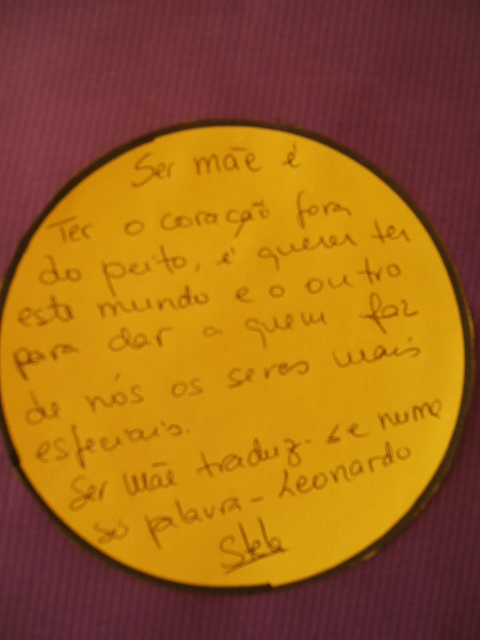 Ser mãe é
Ter o coração fora
do peito, é querer ter
este mundo e o outro
para dar a quem faz
de nós os seres mais
especiais.
Ser mãe traduz-se numa
só palavra - Leonardo
Stela